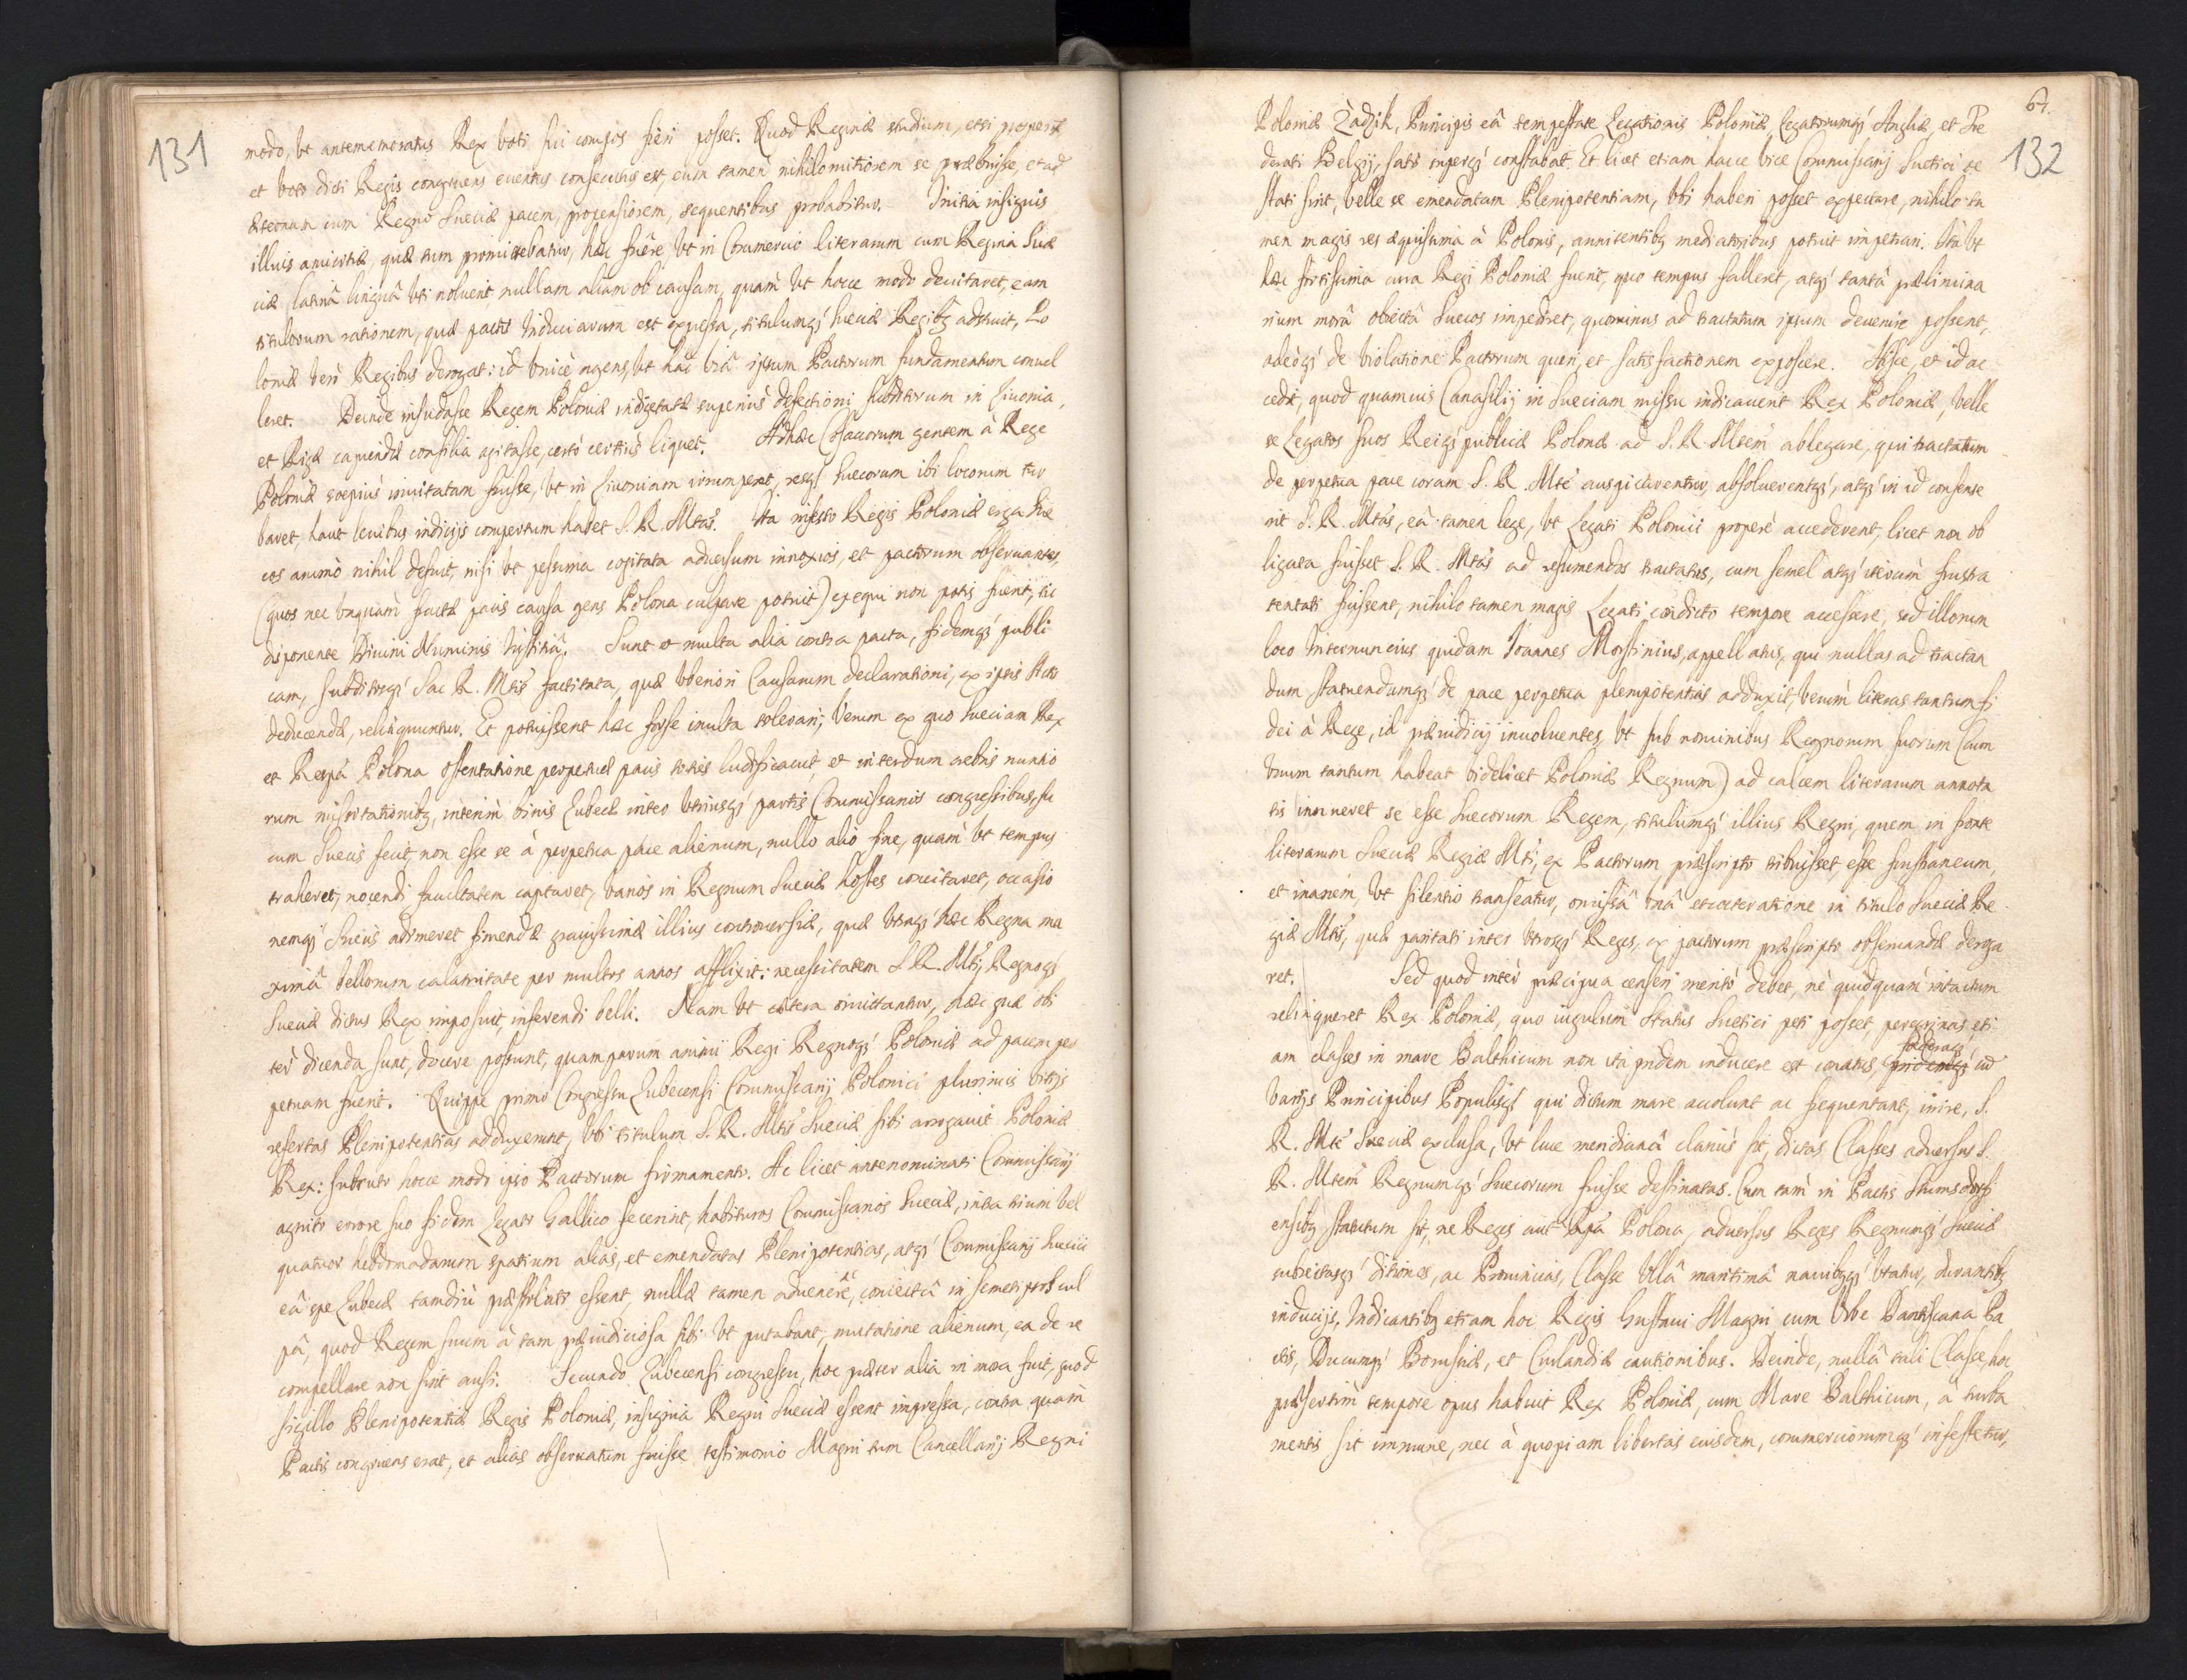 131
modo, vt antememoratus Rex voti sui compos fieri posset. Quod Reginæ studium, etsi prosper
et voto dicti Regis congruens euentus consecutus est, eum tamen nihilo mitiorem se præbuisse, et ad
æternam cum Regno Sueciæ pacem, propensiorem, sequentibus probabitur. Initia insignis
illius amicitiæ, quæ tum promittebatur, hæc fuêre, vt in Commercio literarum cum Regina Sue
ciæ, Latinâ linguâ vti noluerit nullam aliam ob causam, quàm vt hocce modo deuitaret, eam
titulorum rationem, quæ pactis Induciarum est expressa, titulumq́ Sueciæ Regibꝫ adstruit, Po
loniæ verò Regibus derogat: id vnicè agens, vt hâc viâ ipsum Pactorum fundamentum conuel
leret. Deinde insudasse Regem Poloniæ indigetatæ superiùs defectioni subditorum in Liuonia,
et Rigæ capiendæ consilia agitasse, certò certius liquet. Adhæc Cosaccorum gentem à Rege
Poloniæ soepiùs inuitatam fuisse, vt in Liuoniam irrumperet, resq́ Suecorum ibi locorum tur
baret, haut leuibus indicijs compertum habet S. R. Mtas. Ita infesto Regis Poloniæ erga Sue
cos animò nihil defuit, nisi vt pessima cogitata aduersum innoxios, et pactorum obseruantes,
(quos nec vnquam fractæ pacis causa gens Polona culpare potuit) exequi non potis fuerit, sic
disponente Diuini Numinis Iustitiâ. Sunt et multa alia contra pacta, fidemq́ publi
cam, subditosq́ Sac. R. Mtis factitata, quæ vberiori Causarum declarationi, ex ipsis Actis
deducendæ, relinquuntur. Et potuissent hæc forse inulta tolerari; Verum ex quo Sueciam Rex
et Respa Polona ostentatione perpetuæ pacis toties ludificauit, et interdum crebris nuntio
rum missitationibꝫ, interim binis Lubecæ inter vtriusq́ partis Commissarios congressibus, fu
cum Suecis fecit, non esse se à perpetua pace alienum, nullo aliò fine, quàm vt tempus
traheret, nocendi facultatem captaret, varios in Regnum Sueciæ hostes concitaret, occasio
nemq́ Suecis adimeret finiendæ grauissimæ illius controuersiæ, quæ vtraq́ hæc Regna ma
ximâ bellorum calamitate per multos annos afflixit: necessitatem S. R. Mti, Regnoq́
Sueciæ dictus Rex imposuit, inferendi belli. Nam vt cætera omittantur, hæc quæ obi
tèr dicenda sunt, docere possunt, quam parum animi Regi Regnoq́ Poloniæ ad pacem per
petuam fuerit. Quippe primo Congressu Lubecensi Commissarij Polonici plurimis vitijs
refertas Plenipotentias adduxerunt, Vbi titulum S. R. Mtis Sueciæ sibi arrogauit Poloniæ
Rex: subruto hocce modo ipso Pactorum firmamento. Ac licet antenominati Commissarij
agnito errore suo fidem Legato Gallico fecerint, habituros Commissarios Sueciæ, intra trium vel
quatuor hebdomadarum spatium alias, et emendatas Plenipotentias, atq́ Commissarij Suecici
eâ spe Lubecæ tamdiù præstoluti essent, nullæ tamen aduenêre, coniectâ in semetipsos cul
pâ, quod Regem suum à tam præiudiciosa sibi vt putabant, mutatione alienum, ea de re
compellare non sint ausi. Secundo Lubecensi congressu, hoc præter alia in mora fuit, quod
sigillo Plenipotentiæ Regis Poloniæ, insignia Regni Sueciæ essent impressa, contra quam
Pactis congruens erat, et aliàs obseruatum fuisse testimonio Magni tum Cancellarij Regni
67.
132
Poloniæ Zadzik, Principis eâ tempestate Legationis Polonicæ, Legatorumq́ Angliæ, et Fœ
derati Belgij, satis superq́ constabat. Et licet etiam hacce vice Commissarij Suetici te
stati sint, velle se emendatam Plenipotentiam, vbi haberi posset expectare, nihilo ta
men magis res æquissima à Polonis, annitentibꝫ mediatoribus potuit impetrari. Ità vt
hæc sola cura Regi Poloniæ fuerit, quo tempus falleret, atq́ tantâ prælimina
rium morâ obiectâ Suecos impediret, quominus ad tractatum ipsum deuenire possent,
adeòq́ de violatione Pactorum queri, et satisfactionem exposcere. Hisce, et id ac
cedit, quod quamuis Canasilij in Sueciam missu indicauerit Rex Poloniæ, velle
se Legatos suos Reiq́ publicæ Polonæ ad S. R. Mtem ablegare, qui tractatum
de perpetua pace coram S. R. Mte auspicarentur, absoluerentq́, atq́ in id consense
rit S. R. Mtas, eâ tamen lege, vt Legati Polonici properè accederent, licet non ob
ligata fuisset S. R. Mtas ad resumendos tractatus, cum semel atq́ iterùm frustra
tentati fuissent, nihilo tamen magis Legati condicto tempore accessere, sed illorum
loco Internuncius quidam Joannes Morstinius, appellatus, qui nullas ad tractan
dum statuendumq́ de pace perpetua plenipotentias adduxit, verùm literas tantum fi
dei à Rege, id præiudicij inuoluentes, vt sub nominibus Regnorum suorum (cum
vnum tantum habeat videlicet Poloniæ Regnum) ad calcem literarum annota
tis innueret se esse Suecorum Regem, titulumq́ illius Regni, quem in fronte
literarum Sueciæ Regiæ Mti, ex Pactorum præscripto tribuisset, esse frustraneum,
et inanem, vt silentio transeatur, omissâ vnâ etcæteratione in titulo Sueciæ Re
giæ Mtis, quæ paritati inter vtrosq́ Reges, ex pactorum præscripto obseruandæ deroga
ret. Sed quod inter præcipua censeri meritò debet, nè quidquam intactum
relinqueret Rex Poloniæ, quo iugulum Status Suetici peti posset, peregrinas eti
fœderaq́
am classes in mare Balthicum non ità pridem inducere est conatus, pridemq́ cū
varijs Principibus Populisq́ qui dictum mare accolunt ac frequentant, inire, S.
R. Mte Sueciæ exclusa, vt luce meridianâ clarius sit, dictas Classes aduersus S.
R. Mtem Regnumq́ Suecorum fuisse destinatas. Cum tam in Pactis Stumsdorfi
ensibꝫ statutum sit, ne Reges aut Respa Polona, aduersus Reges Regnumq́ Sueciæ
subiectasq́ ditiones, ac Prouincias, Classe vllâ maritimâ nauibꝫq́ vtatur, durantibꝫ
inducijs, Indicantibꝫ etiam hoc Regis Gustaui Magni cum Vrbe Dantiscana Pa
ctis, Ducumq́ Borussiæ, et Curlandiæ cautionibus. Deinde, nullâ tali Classe, hoc
præsertim tempore opus habuit Rex Poloniæ, cum Mare Balthicum, a turba
mentis sit immune, nec à quopiam libertas eiusdem, commerciorumq́ infestetur,